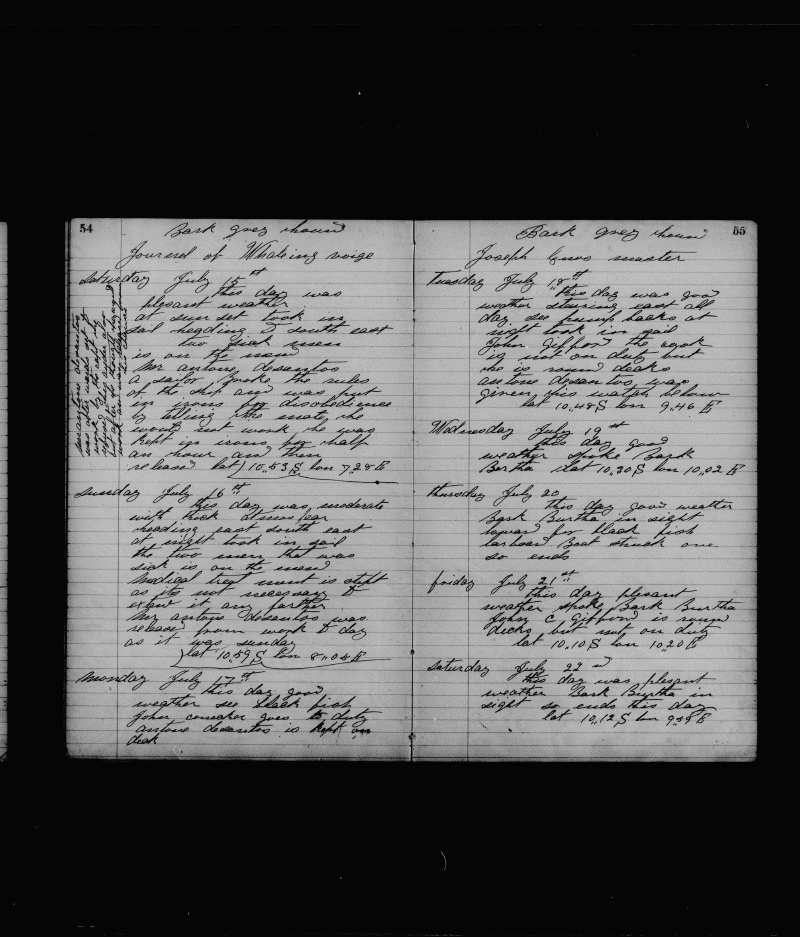 54
Bark grey hound
Journel of Whaleing voige
Saturday July 15 st
this day was
plesant weather
at sun set took in
sail heading S south east
two sick men
is on the mend
Mr antone desantos
a sailor broke the rules
of the ship and was put
in irons for disobedience
by telling the mate he
would not work he was
kept in irons for half
an hour and then
released lat 10,,53 S lon 7,,28 E
Sunday July 16 th
this day was moderate
with thick atmosfear
heading east south east
at night took in sail
the two men that was
sick is on the mend
Medical treatment is stopt
as its not necessary to
extend it any farther
Mr antone desantos was
released from work to day
as it was sunday
lat 10,,59 S lon 8,,04 E
Monday July 17 th
this day good
weather see black fish
John goes to duty
antone desantos is kept on
deck
antone desantos
was
work
after
55
Bark grey hound
Joseph master
Tuesday July 18 th
this day was good
weather steering east all
day see humpbacks at
night took in sail
John Gifford the cook
is not on duty but
he is round decks
antone desantos was
given his watch below
lat 10,,48 S lon 9,,46 E
Wednesday July 19 th
this day good
weather spoke Bark
Bertha lat 10,,20 S lon 10,,02 E
thursday July 20
this day good weather
Bark Burtha in sight
loward for black fish
larboard Boat struck one
so ends
friday July 21 st
this day plesant
weather spoke Bark Burtha
John C Gifford is round
decks but not on duty
lat 10,,10 S lon 10,,20 E
Saturday July 22 d
this day was plesant
weather Bark Burtha in
sight so ends this day
lat 10,,12 S lon 9,,58 E